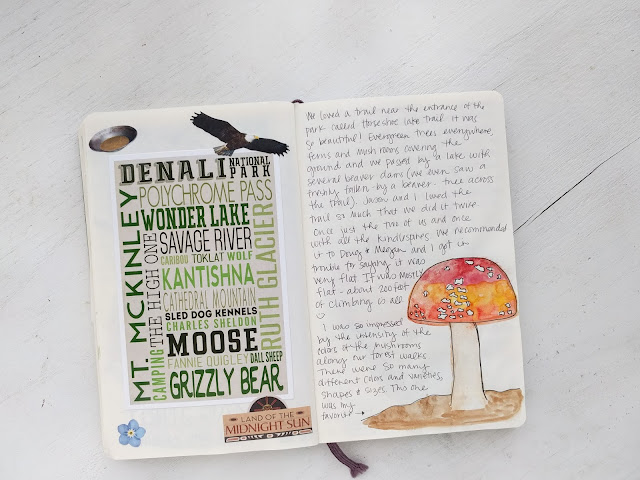 DENALI NATIONAL PARK
MT. MCKINLEY
POLYCHROME PASS
WONDER LAKE
THE HIGH ONE
SAVAGE RIVER
CARIBOU TOKLAT WOLF
KANTISHNA
CATHEDRAL MOUNTAIN
SLED DOG KENNELS
CHARLES SHELDON
RUTH GLACIER
CAMPING
MOOSE
FANNIE QUIGLEY DALL SHEEP
GRIZZLY BEAR
LAND OF THE
MIDNIGHT SUN
We loved a trail near the entrance of the
park called Horseshoe lake trail. It was
so beautiful! Evergreen trees everywhere,
ferns and mushrooms covering the
ground and we passed by a lake with
several beaver dams (we even saw a
freshly fallen-by a beaver-tree across
the trail). Jason and I loved the
trail so much that we did it twice
once just the two of us and once
with all the Kindreds. We recommended
it to Doug & Meegan and I got in
trouble to saying it was
very flat. It was mostly
flat - about 200 feet
of climbing is all
I was so impressed
by the intensity of the
colors of the mushrooms
along our forest walks
There were so many
different colors and varieties,
shapes & sizes. This one
was my
favorite →